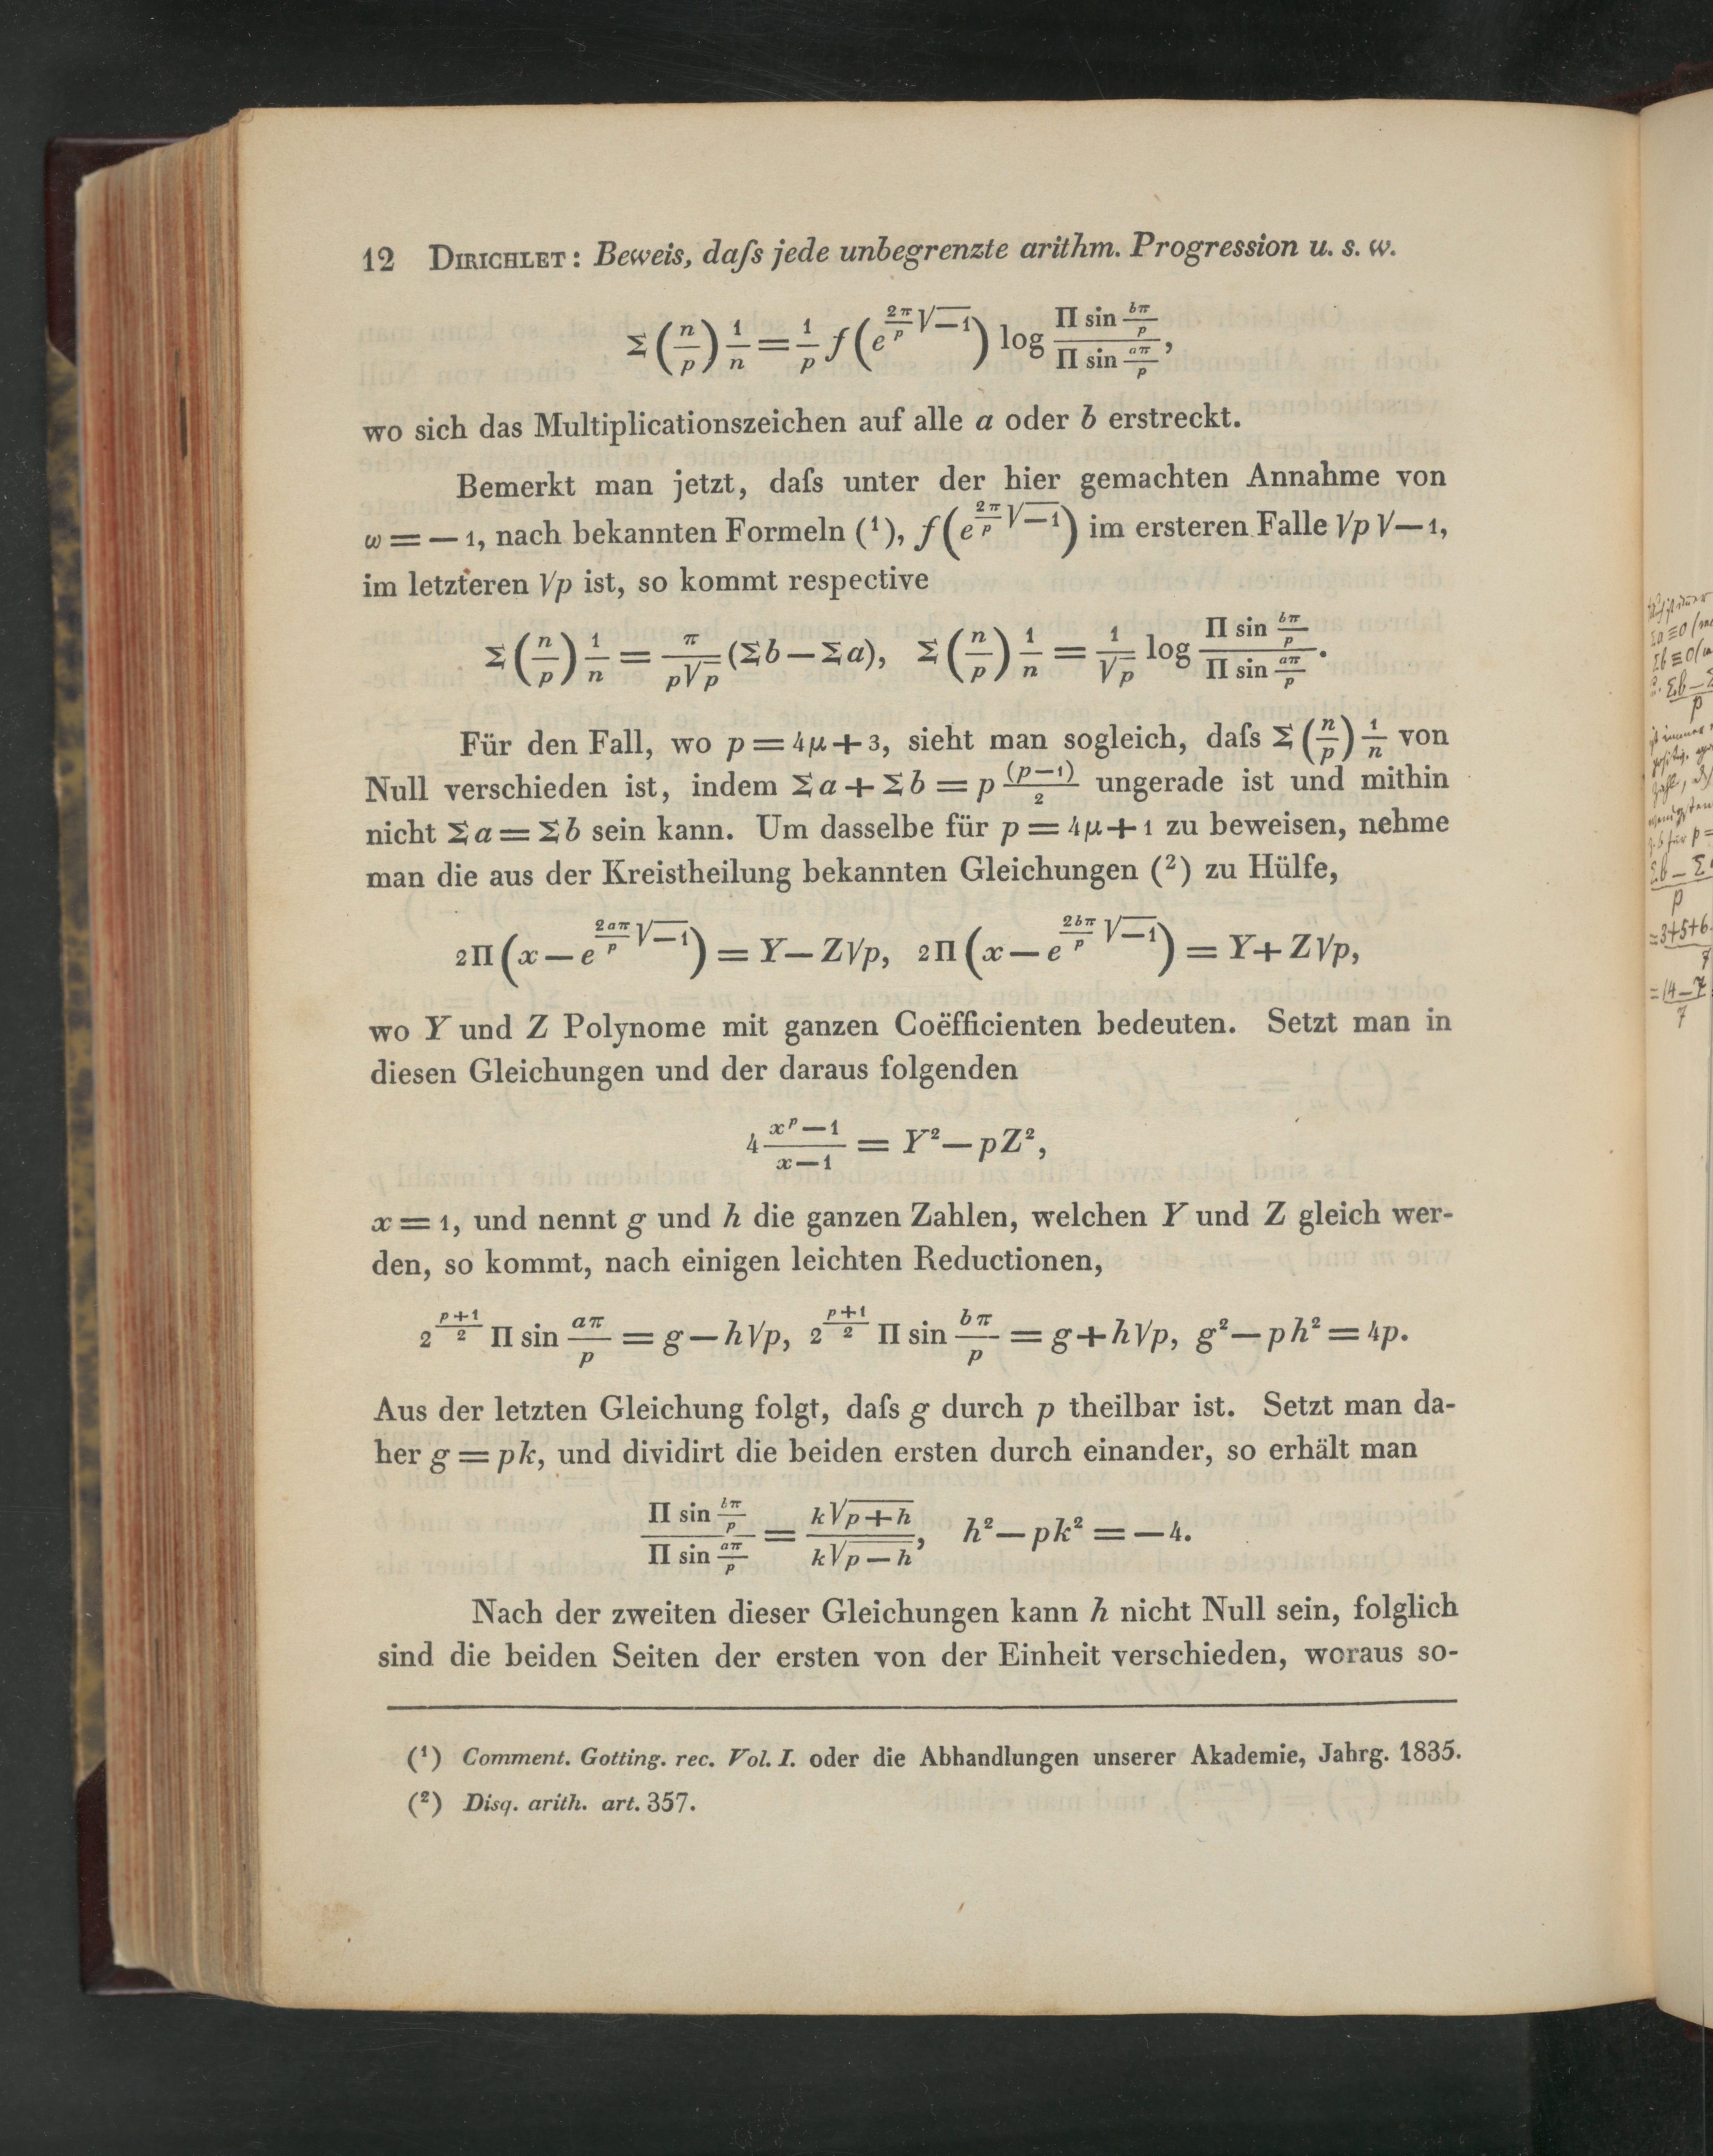 12 DIRICHLET: Beweis, daſs jede unbegrenzte arithm. Progression u. s. w.
Σ (n/p) 1/n = 1/p f(e^{2π/p √−1}) log (Π sin bπ/p)/(Π sin aπ/p),
wo sich das Multiplicationszeichen auf alle a oder b erstreckt.
Bemerkt man jetzt, daſs unter der hier gemachten Annahme von
ω = — 1, nach bekannten Formeln (¹), f(e^{2π/p √−1}) im ersteren Falle √p √—1,
im letzteren √p ist, so kommt respective
Σ (n/p) 1/n = π/(p√p) (Σb — Σa), Σ (n/p) 1/n = 1/√p log (Π sin bπ/p)/(Π sin aπ/p).
Für den Fall, wo p = 4μ + 3, sieht man sogleich, daſs Σ (n/p) 1/n von
Null verschieden ist, indem Σa + Σb = p (p—1)/2 ungerade ist und mithin
nicht Σa = Σb sein kann. Um dasselbe für p = 4μ + 1 zu beweisen, nehme
man die aus der Kreistheilung bekannten Gleichungen (²) zu Hülfe,
2Π(x — e^{2aπ/p √−1}) = Y — Z√p, 2Π(x — e^{2bπ/p √−1}) = Y + Z√p,
wo Y und Z Polynome mit ganzen Coëfficienten bedeuten. Setzt man in
diesen Gleichungen und der daraus folgenden
4 (x^p — 1)/(x — 1) = Y² — pZ²,
x = 1, und nennt g und h die ganzen Zahlen, welchen Y und Z gleich wer-
den, so kommt, nach einigen leichten Reductionen,
2^{(p+1)/2} Π sin aπ/p = g — h√p, 2^{(p+1)/2} Π sin bπ/p = g + h√p, g² — ph² = 4p.
Aus der letzten Gleichung folgt, daſs g durch p theilbar ist. Setzt man da-
her g = pk, und dividirt die beiden ersten durch einander, so erhält man
(Π sin bπ/p)/(Π sin aπ/p) = (k√p + h)/(k√p — h), h² — pk² = — 4.
Nach der zweiten dieser Gleichungen kann h nicht Null sein, folglich
sind die beiden Seiten der ersten von der Einheit verschieden, woraus so-
(¹) Comment. Gotting. rec. Vol. I. oder die Abhandlungen unserer Akademie, Jahrg. 1835.
(²) Disq. arith. art. 357.
Σa ≡ 0
Σb ≡ 0
Σb — Σ
p
für p =
Σb — Σ
p
= 3+5+6
7
= 14 — 7
7